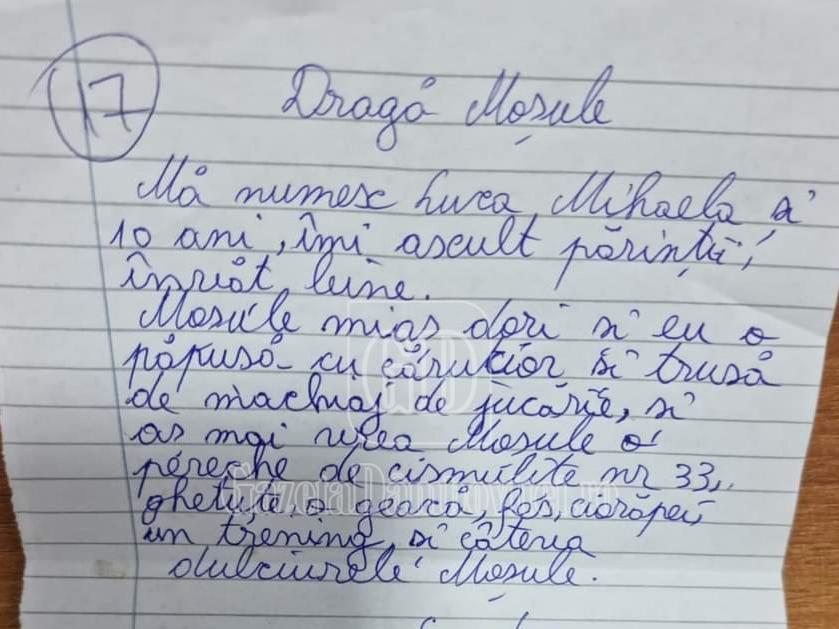 17
Dragă Moșule
Mă numesc Luca Mihaela și
10 ani, îmi ascult părinții,
învăt bine.
Mosule mias dori si eu o
păpusă cu cărucior si trusă
de machiaj de jucărie, si
as mai vrea Mosule o
pereche de cismulite nr 33,
ghetute, o geacă, fes, ciorăpei,
un trening, si câteva
dulciurele Mosule.
GazetaDambovitei.ro